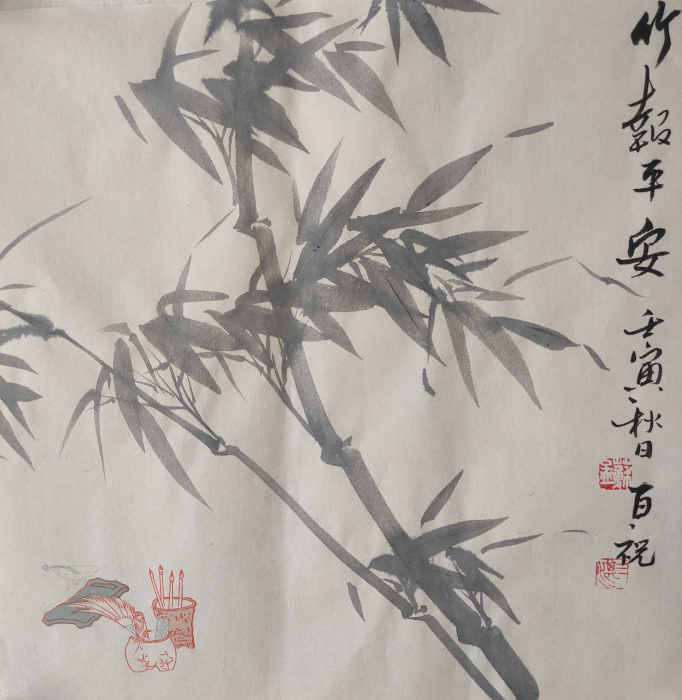 竹報平安壬寅秋日百祝